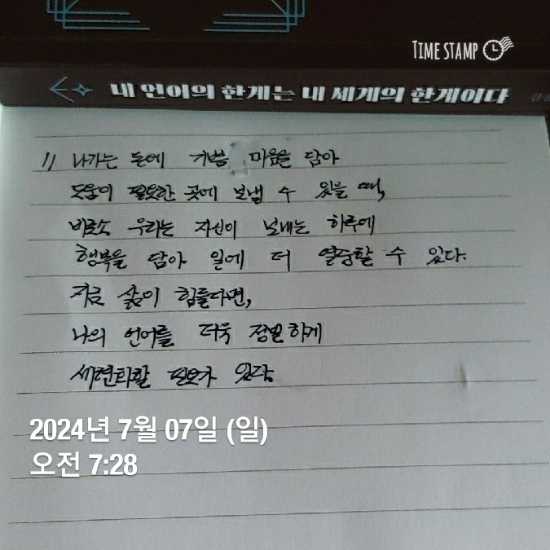 TIME STAMP
내 언어의 한계는 내 세계의 한계이다
11 나가는 돈에 기쁨 마음을 담아
도움이 필요한 곳에 보낼 수 있을 때,
비로소 우리는 자신이 보내는 하루에
행복을 담아 일에 더 열중할 수 있다.
지금 삶이 힘들다면,
나의 언어를 더욱 정밀하게
세련화할 필요가 있다.
2024년 7월 07일 (일)
오전 7:28